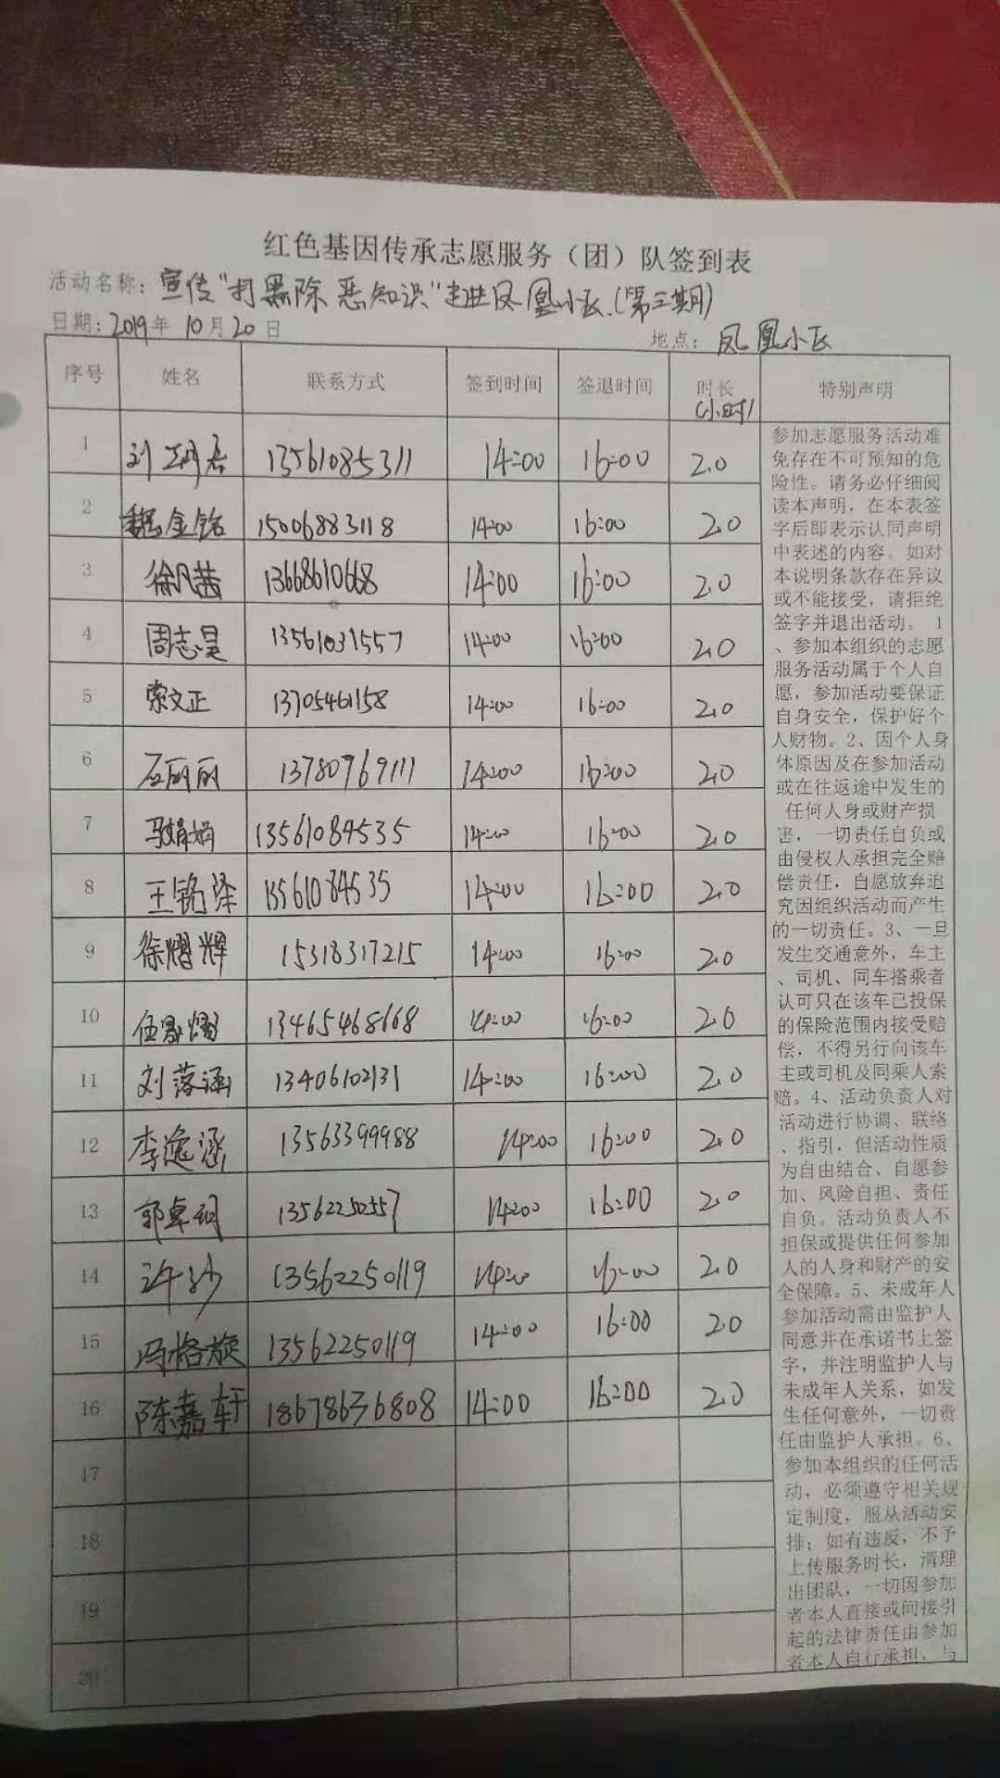 红色基因传承志愿服务（团）队签到表
活动名称：宣传"打黑除恶知识"走进凤凰小区（第三期）
日期：2019年 10月20日
地点：凤凰小区
序号 姓名 联系方式 签到时间 签退时间 时长（小时） 特别声明
1 刘 13561085311 14:00 16:00 2.0
2 魏金铭 15006883118 14:00 16:00 2.0
3 徐凡茜 13668610668 14:00 16:00 2.0
4 周志昊 13561031557 14:00 16:00 2.0
5 索文正 13705461158 14:00 16:00 2.0
6 石丽丽 13780769111 14:00 16:00 2.0
7 马娟娟 13561084535 14:00 16:00 2.0
8 王铭泽 13561084535 14:00 16:00 2.0
9 徐熠辉 15318317215 14:00 16:00 2.0
10 13465468668 14:00 16:00 2.0
11 刘落涵 13406102131 14:00 16:00 2.0
12 李逸涵 13563399988 14:00 16:00 2.0
13 郭卓 13562250557 14:00 16:00 2.0
14 许 13562250119 14:00 16:00 2.0
15 冯格旋 13562250119 14:00 16:00 2.0
16 陈嘉轩 18678636808 14:00 16:00 2.0
17
18
19
20
参加志愿服务活动难
免存在不可预知的危
险性。请务必仔细阅
读本声明，在本表签
字后即表示认同声明
中表述的内容。如对
本说明条款存在异议
或不能接受，请拒绝
签字并退出活动。 1
、参加本组织的志愿
服务活动属于个人自
愿，参加活动要保证
自身安全，保护好个
人财物。2、因个人身
体原因及在参加活动
或在往返途中发生的
任何人身或财产损
害，一切责任自负或
由侵权人承担完全赔
偿责任，自愿放弃追
究因组织活动而产生
的一切责任。3、一旦
发生交通意外，车主
、司机、同车搭乘者
认可只在该车已投保
的保险范围内接受赔
偿，不得另行向该车
主或司机及同乘人索
赔。4、活动负责人对
活动进行协调、联络
、指引，但活动性质
为自由结合、自愿参
加、风险自担、责任
自负。活动负责人不
担保或提供任何参加
人的人身和财产的安
全保障。5、未成年人
参加活动需由监护人
同意并在承诺书上签
字，并注明监护人与
未成年人关系，如发
生任何意外，一切责
任由监护人承担。6、
参加本组织的任何活
动，必须遵守相关规
定制度，服从活动安
排；如有违反，不予
上传服务时长，清理
出团队，一切因参加
者本人直接或间接引
起的法律责任由参加
者本人自行承担，与